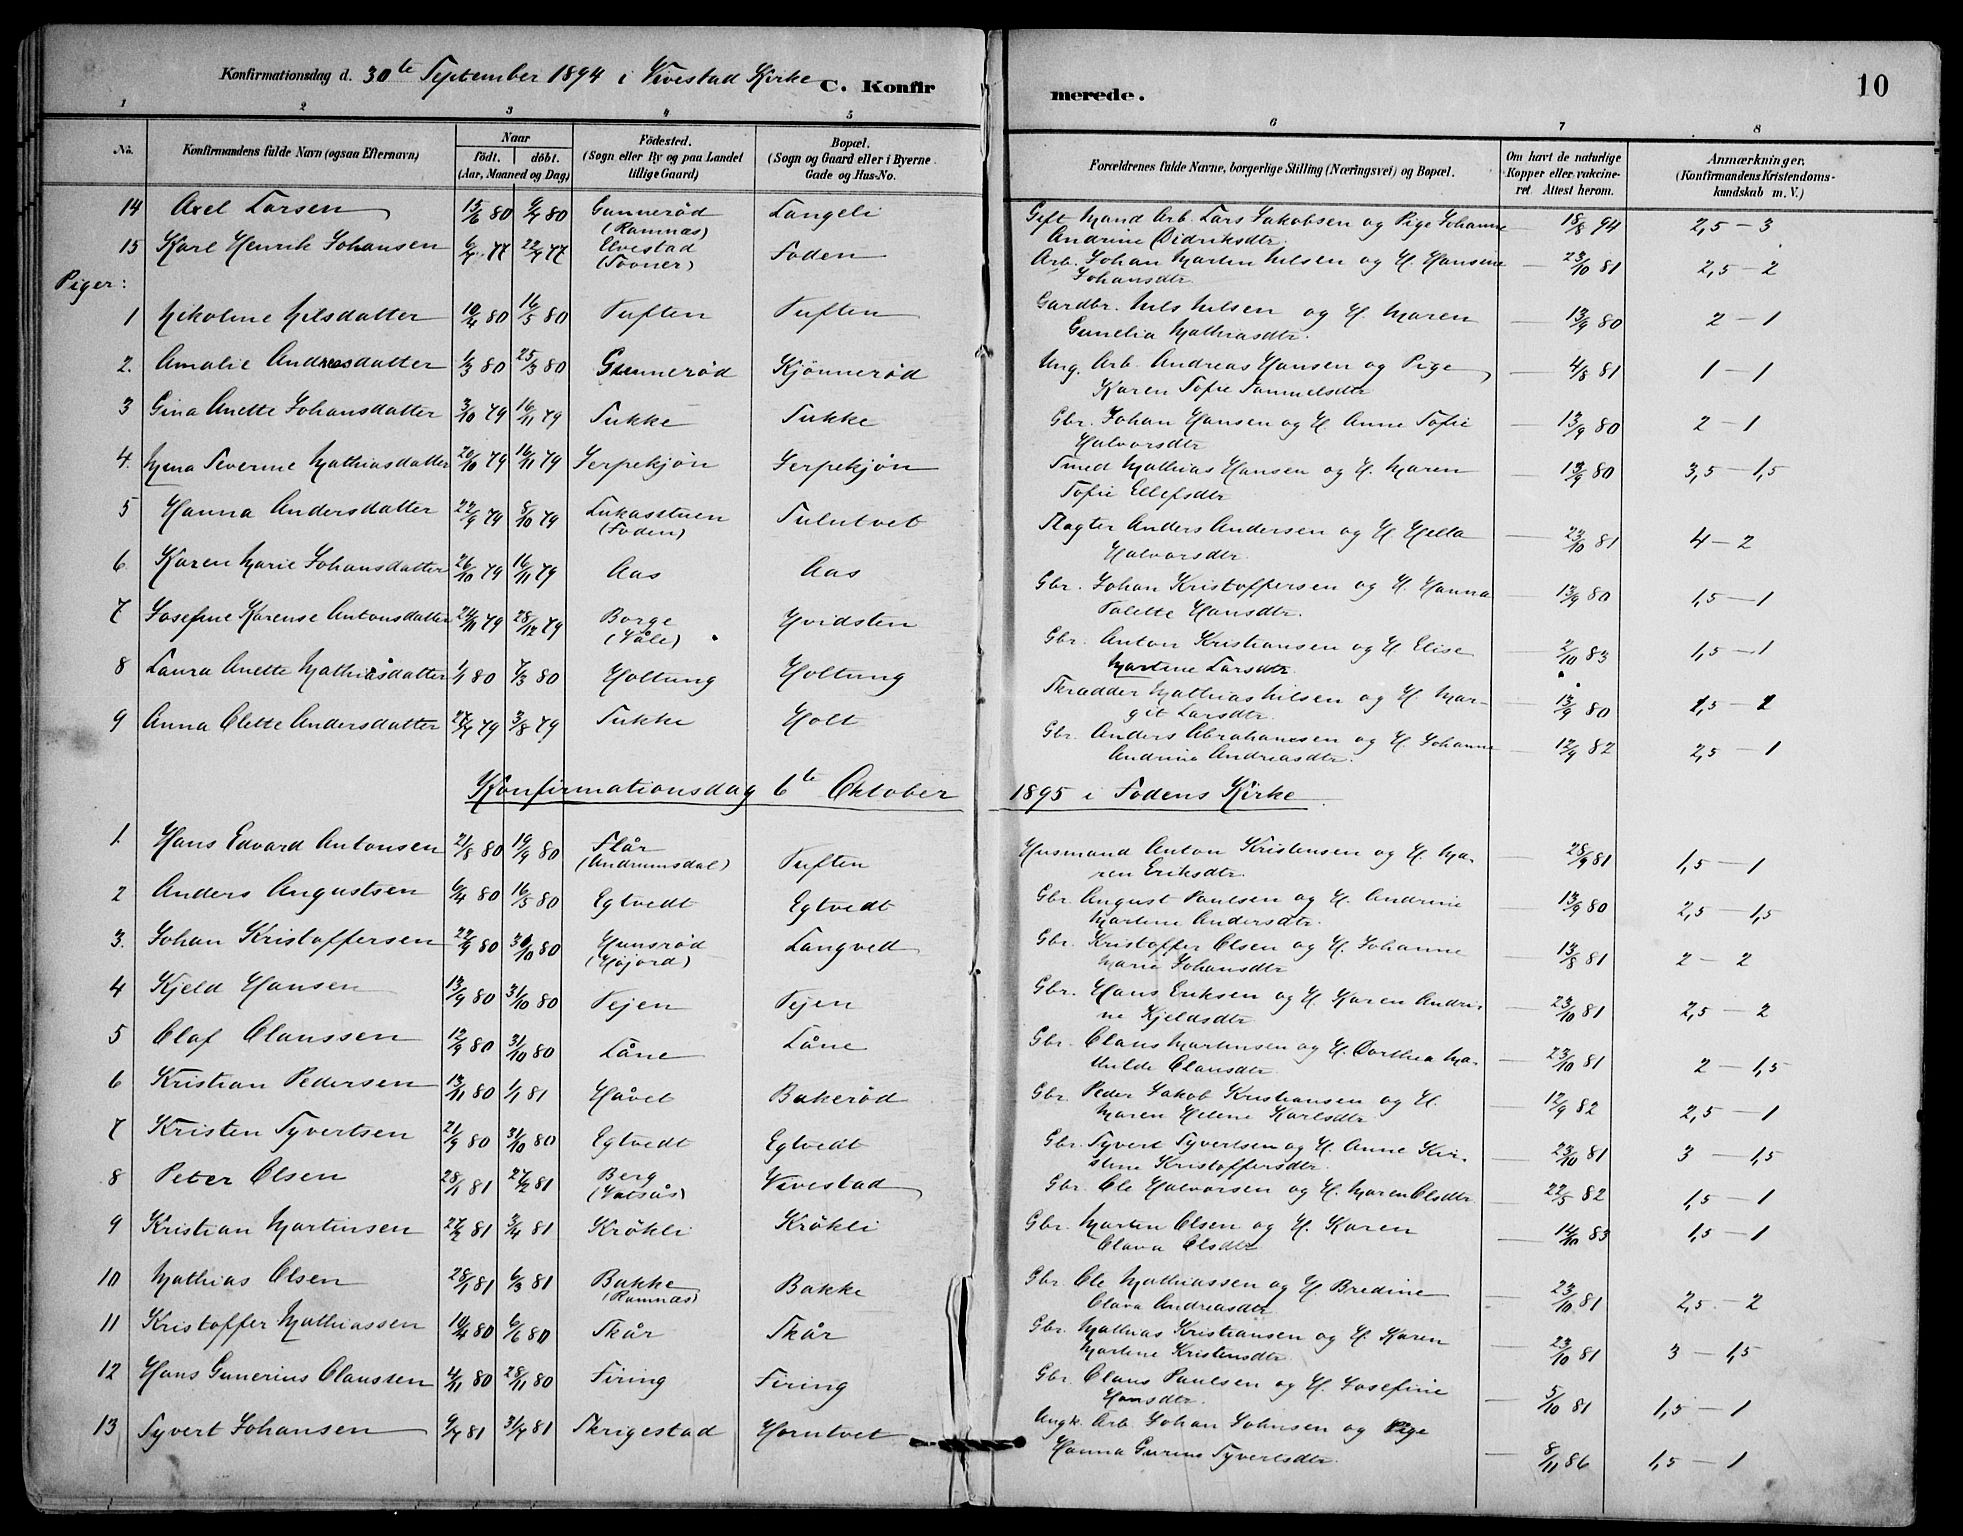 Konfirmationsdag d. 30te September 1894 i Vivestad Kirke C. Konfir merede. 10
1 2 3 4 5 6 7 8
No. Konfirmandens fulde Navn (ogsaa Efternavn) Naar födt. döbt. (Aar, Maaned og Dag) Födested. (Sogn eller By og paa Landet tillige Gaard) Bopæl. (Sogn og Gaard eller i Byerne Gade og Hus-No. Forældrenes fulde Navne, borgerlige Stilling (Næringsvei) og Bopæl. Om havt de naturlige Kopper eller vakcineret. Attest herom. Anmærkninger. (Konfirmandens Kristendomskundskab m. V.)
14 Axel Larsen 13/6 80 80 Gunnerød (Ramnæs) Langeli Gift Mand Arb. Lars Jakobsen og Pige Johanne — 18/8 94 2,5 – 3
Andrine Didriksdtr.
15 Karl Henrik Johansen 77 22/7 77 Elvestad (Sovner) Foden Arb. Johan Martin Nilsen og H. Hansine — 23/10 81 2,5 – 2
Johansdtr.
Piger:
1 Nikoline Nilsdatter 10/4 80 16/5 80 Tuften Tuften Gardbr. Nils Nilsen og H. Maren — 13/9 80 2 – 1
Gunelia Mathiasdtr.
2. Amalie Andreasdatter 1/3 80 25/3 80 Gunnerød Kjønnerød Ung. Arb. Andreas Hansen og Pige — 4/8 81 1 – 1
Karen Sofie Samuelsdtr
3 Gina Anette Johansdatter 3/10 79 16/11 79 Sukke Sukke Gbr. Johan Hansen og H. Anne Sofie — 13/9 80 2 – 1
Halvorsdtr
4. Mina Severine Mathiasdatter 20/10 79 16/11 79 Serpekjøn Serpekjøn Smed Mathias Hansen og H. Maren — 13/9 80 3,5 – 1,5
Sofie Ellefsdtr
5 Hanna Andersdatter 22/9 79 8/10 79 Lukasstuen (Foden) Sulutvet Slagter Anders Andersen og H. Hella — 23/10 81 4 – 2
Halvorsdtr.
6 Karen Marie Johansdatter 26/10 79 16/11 79 Aas Aas Gbr. Johan Kristoffersen og H. Hanna — 13/9 80 1,5 – 1
Talette Hansdtr.
7 Josefine Karense Antonsdatter 24/11 79 28/12 79 Borge (Våle) Hvidsten Gbr. Anton Kristiansen og H. Elise — 2/10 83 1,5 – 1
Martine Larsdtr
8 Laura Anette Mathiasdatter 1/1 80 7/3 80 Holtung Holtung Skrædder Mathias Nilsen og H. Mar- — 13/9 80
git Larsdtr.
9 Anna Olette Andersdatter 79 3/8 79 Sukke Holt Gbr. Anders Abrahamsen og H. Johanne — 12/9 82 2,5 – 1
Andrine Andreasdtr.
Konfirmationsdag 6te Oktober 1895 i Fodens Kirke
1. Hans Edvard Antonsen 21/8 80 19/9 80 Flår (Andrumsdal) Tuften Husmand Anton Kristensen og H. Ma- — 28/9 81 1,5 – 1
ren Eriksdtr.
2 Anders Augustsen 6/4 80 16/5 80 Egtvedt Egtvedt Gbr. August Paulsen og H. Andrine — 13/9 80 2,5 – 1,5
Martine Andersdtr.
3. Johan Kristoffersen 22/9 80 80 Hunsrød (Højord) Langved Gbr. Kristoffer Olsen og H. Johanne — 13/8 81 2 – 2
Marie Johansdtr
4 Kjeld Hansen 13/9 80 31/10 80 Vejen Vejen Gbr. Hans Eriksen og H Karen Andri- — 23/10 81 2,5 – 2
ne Kjeldsdtr
5 Olaf Claussen 12/9 80 31/10 80 Låne Låne Gbr. Claus Martinsen og H. Dorthea Ma- — 23/10 81 2 – 1,5
thilde Olausdtr.
6 Kristian Pedersen 13/11 80 1/1 81 Håvet Bakerød Gbr. Peder Jakob Kristiansen og H. — 12/9 82 2,5 – 1
Maren Helene Karlsdtr.
7 Kristen Syvertsen 21/9 80 31/10 80 Egtvedt Egtvedt Gbr. Syvert Syvertsen og H. Anne Kir- — 23/10 81 3 – 1,5
stine Kristoffersdtr.
8 Peter Olsen 28/1 81 27/2 81 Berg (Vatsås) Vivestad Gbr. Ole Halvorsen og H. Maren Olsdtr. — 22/5 82 1,5 – 1
9 Kristian Martinsen 27/2 81 3/4 81 Krökli Krökli Gbr. Martin Olsen og H. Karen — 14/10 83 1,5 – 1
Olava Olsdtr
10 Mathias Olsen 28/1 81 6/3 81 Bakke (Ramnæs) Bakke Gbr Ole Mathiassen og H Bredine — 23/10 81 2,5 – 2
Olava Andreasdtr
11 Kristoffer Mathiassen 10/4 80 6/6 80 Skår Skår Gbr. Mathias Kristiansen og H Karen — 23/10 81 3 – 1,5
Martine Kristensdtr.
12 Hans Gunerius Claussen 4/11 80 28/11 80 Firing Firing Gbr. Claus Paulsen og H. Josefine — 5/10 81 1,5 – 1
Hansdtr.
13 Syvert Johansen 81 31/7 81 Skrigestad Horntvet Ungk. Arb. Johan Johnsen og Pige — 8/11 86 1,5 – 1
Hanna Gurine Syvertsdtr.